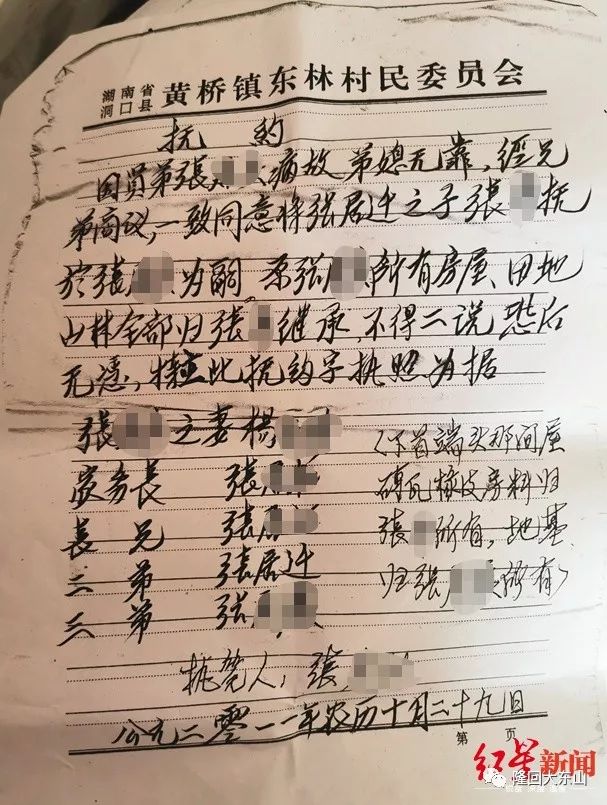 湖南省
洞口县
黄桥镇东林村民委员会
抚约
因员弟张 病故 弟媳无靠, 经兄
弟商议, 一致同意将张居迁之子张 抚
於张 为嗣 原张 所有房屋、田地
山林全部归张 继承, 不得二说 恐后
无凭, 特立此抚约字执照为据
张 之妻杨
房务長 张居
長兄 张居
二弟 张居迁
三弟 张
(下首端头那间屋
砖瓦椽皮房料归
张 所有, 地基
归张 所有)
执笔人, 张
公元二零一一年农历十月二十九日
第 页
红星新闻
隆回大东山